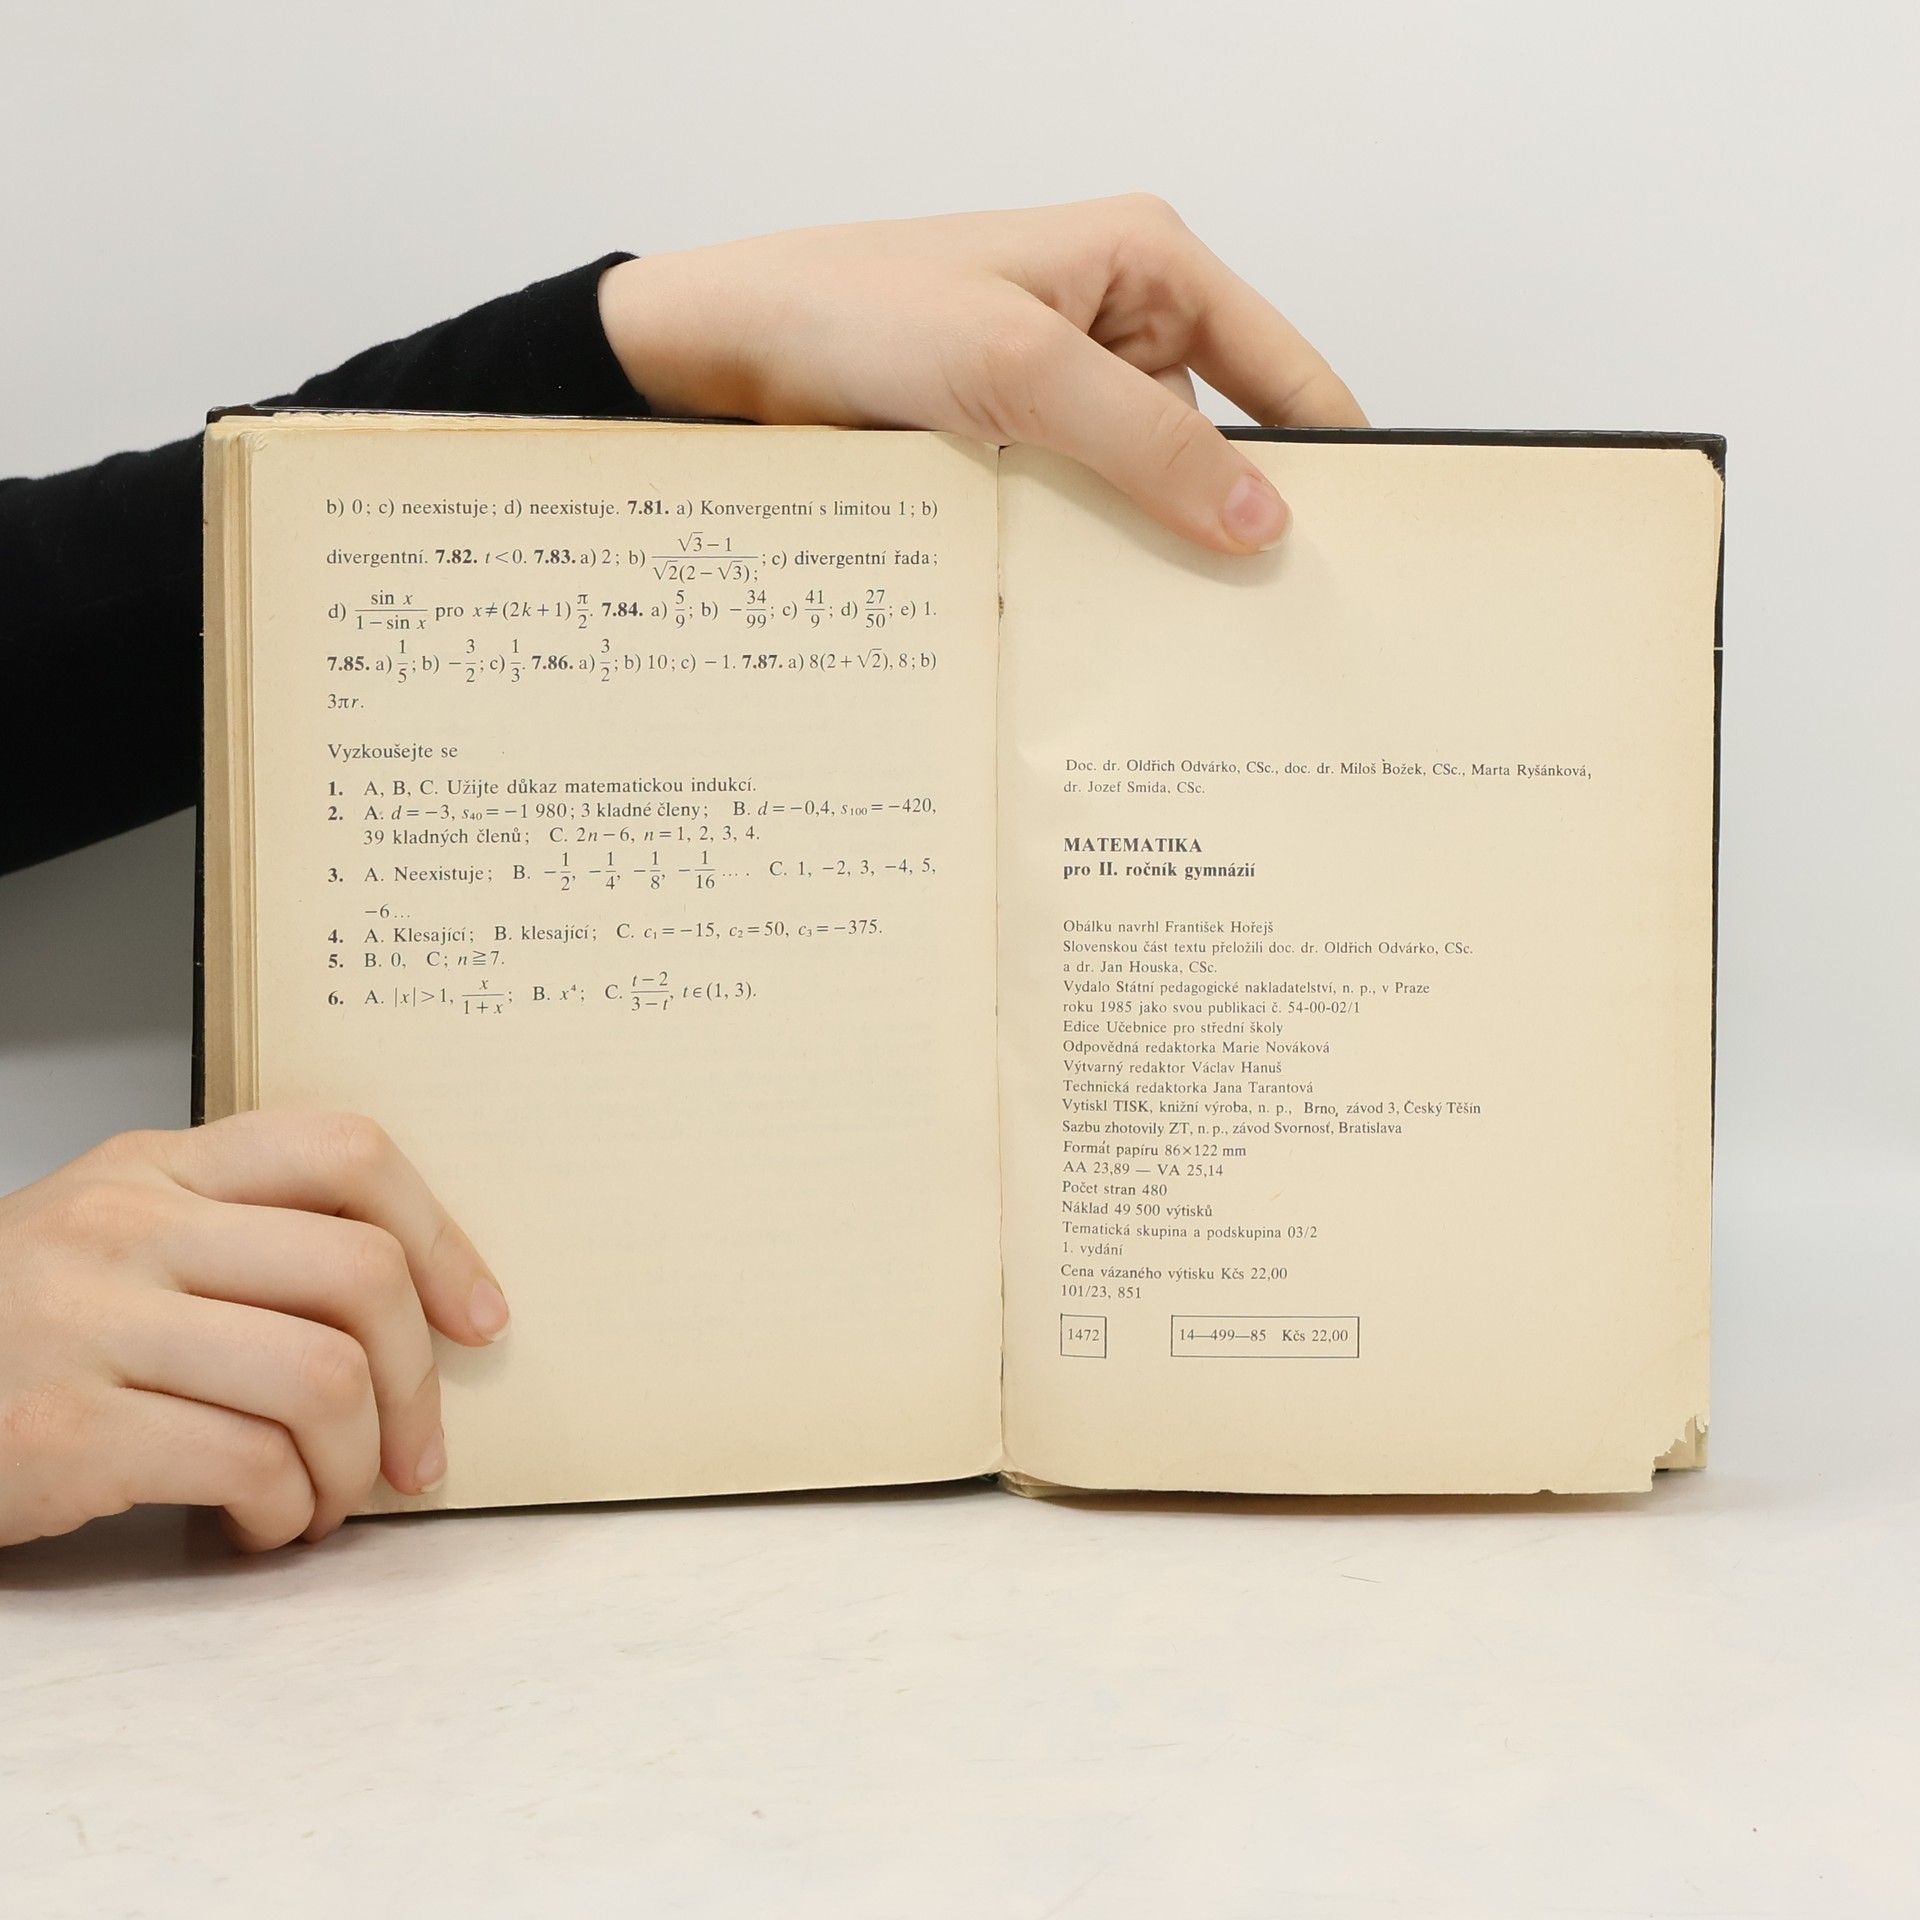 b) 0; c) neexistuje; d) neexistuje. 7.81. a) Konvergentní s limitou 1; b)
divergentní. 7.82. t<0. 7.83. a) 2; b) (√3−1)/(√2(2−√3)); c) divergentní řada;
d) sin x/(1−sin x) pro x≠(2k+1) π/2. 7.84. a) 5/9; b) −34/99; c) 41/9; d) 27/50; e) 1.
7.85. a) 1/5; b) −3/2; c) 1/3. 7.86. a) 3/2; b) 10; c) −1. 7.87. a) 8(2+√2), 8; b)
3πr.
Vyzkoušejte se
1. A, B, C. Užijte důkaz matematickou indukcí.
2. A. d=−3, s₄₀=−1 980; 3 kladné členy; B. d=−0,4, s₁₀₀=−420,
39 kladných členů; C. 2n−6, n=1, 2, 3, 4.
3. A. Neexistuje; B. −1/2, −1/4, −1/8, −1/16 .... C. 1, −2, 3, −4, 5,
−6...
4. A. Klesající; B. klesající; C. c₁=−15, c₂=50, c₃=−375.
5. B. 0, C; n≧7.
6. A. |x|>1, x/(1+x); B. x⁴; C. (t−2)/(3−t), t∈(1, 3).
Doc. dr. Oldřich Odvárko, CSc., doc. dr. Miloš Božek, CSc., Marta Ryšánková,
dr. Jozef Smida, CSc.
MATEMATIKA
pro II. ročník gymnázií
Obálku navrhl František Hořejš
Slovenskou část textu přeložili doc. dr. Oldřich Odvárko, CSc.
a dr. Jan Houska, CSc.
Vydalo Státní pedagogické nakladatelství, n. p., v Praze
roku 1985 jako svou publikaci č. 54-00-02/1
Edice Učebnice pro střední školy
Odpovědná redaktorka Marie Nováková
Výtvarný redaktor Václav Hanuš
Technická redaktorka Jana Tarantová
Vytiskl TISK, knižní výroba, n. p., Brno, závod 3, Český Těšín
Sazbu zhotovily ZT, n. p., závod Svornosť, Bratislava
Formát papíru 86×122 mm
AA 23,89 — VA 25,14
Počet stran 480
Náklad 49 500 výtisků
Tematická skupina a podskupina 03/2
1. vydání
Cena vázaného výtisku Kčs 22,00
101/23, 851
1472 14—499—85 Kčs 22,00